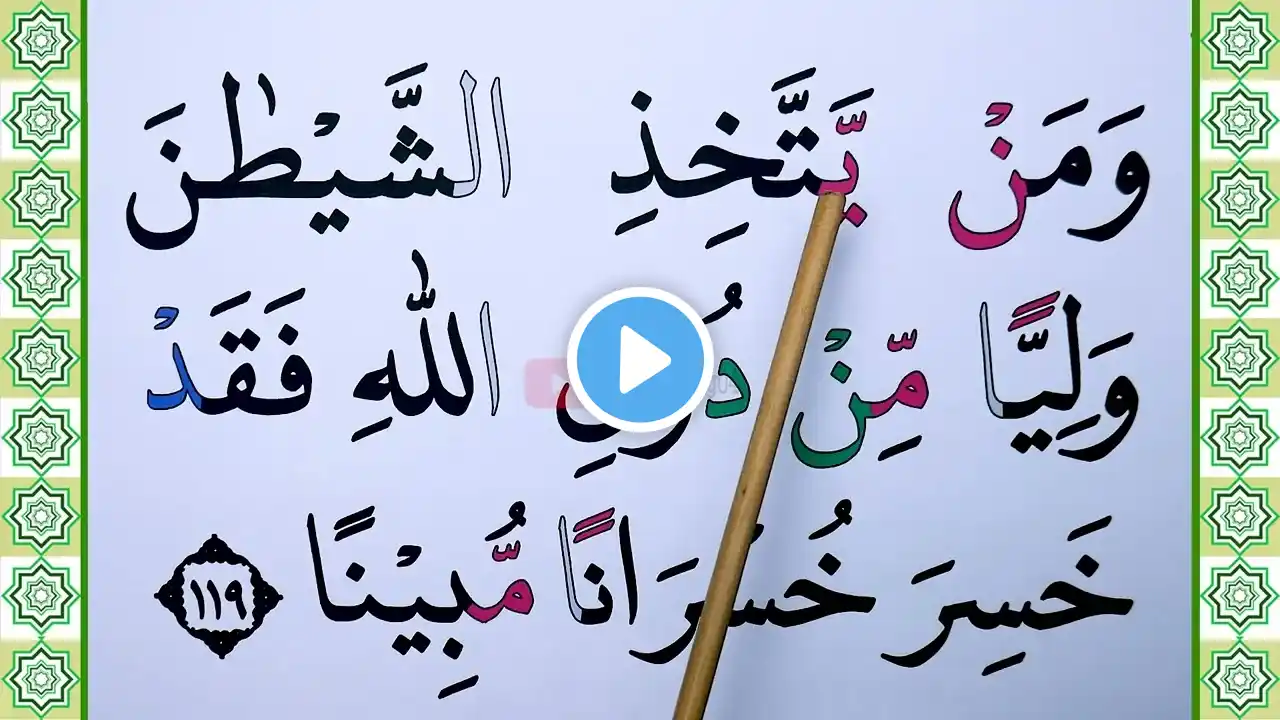 وَمَنْ يَّتَّخِذِ الشَّيْطٰنَ
وَلِيًّا مِّنْ دُوْنِ اللّٰهِ فَقَدْ
خَسِرَ خُسْرَانًا مُّبِيْنًا ١١٩